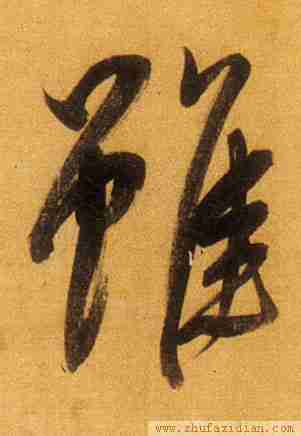 雖
www.shufazidian.com